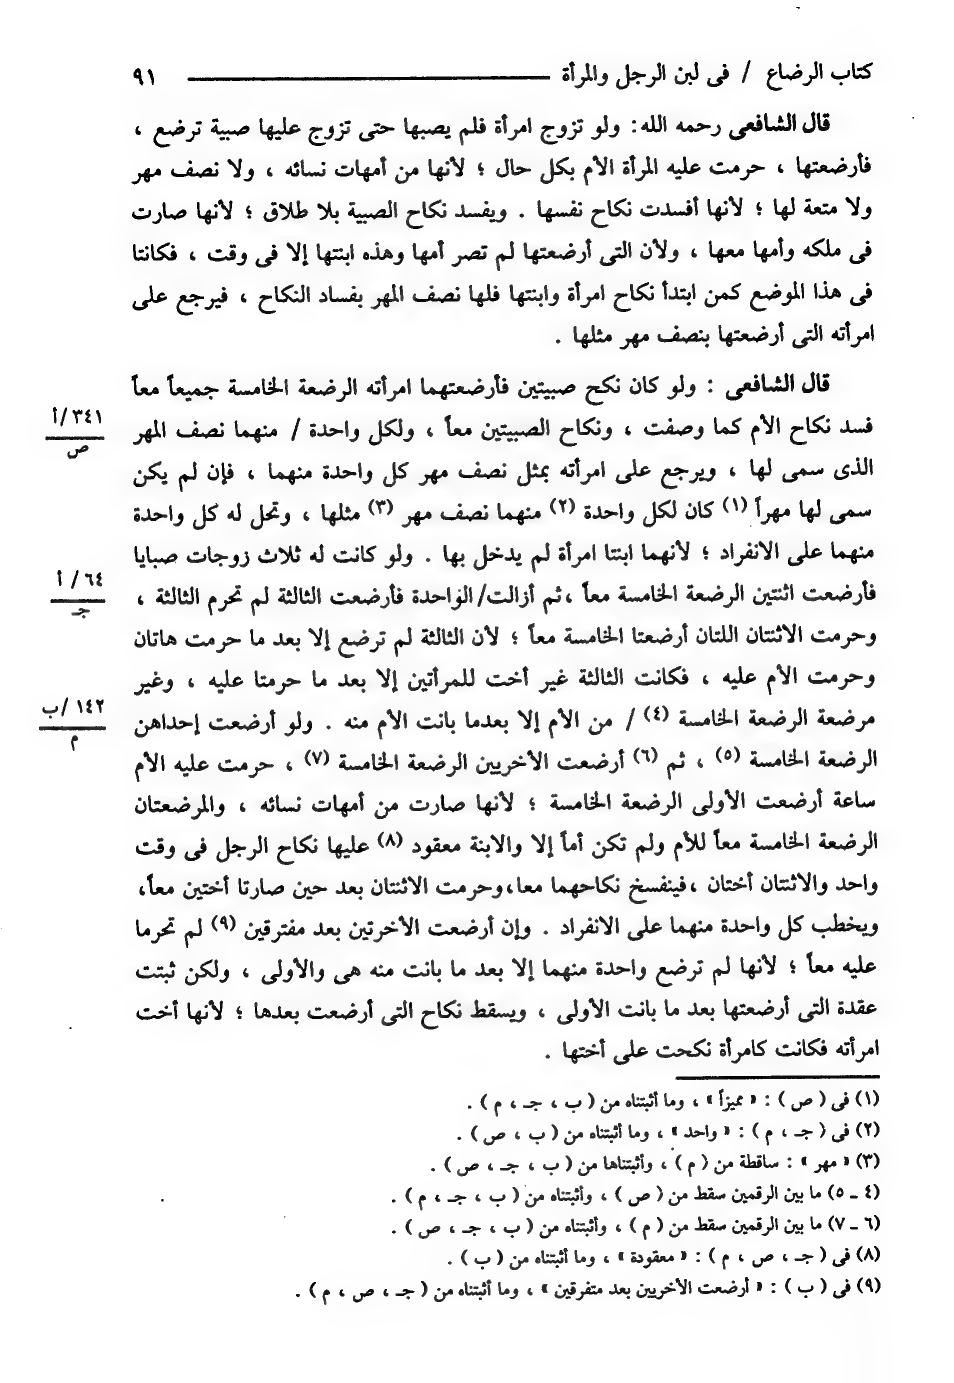 كتاب الرضاع / فى لبن الرجل والمرأة ٩١
قال الشافعى رحمه الله: ولو تزوج امرأة فلم يصبها حتى تزوج عليها صبية ترضع ،
فأرضعتها ، حرمت عليه المرأة الأم بكل حال ؛ لأنها من أمهات نسائه ، ولا نصف مهر
ولا متعة لها ؛ لأنها أفسدت نكاح نفسها . ويفسد نكاح الصبية بلا طلاق ؛ لأنها صارت
فى ملكه وأمها معها ، ولأن التى أرضعتها لم تصر أمها وهذه ابنتها إلا فى وقت ، فكانتا
فى هذا الموضع كمن ابتدأ نكاح امرأة وابنتها فلها نصف المهر بفساد النكاح ، فيرجع على
امرأته التى أرضعتها بنصف مهر مثلها .
قال الشافعى : ولو كان نكح صبيتين فأرضعتهما امرأته الرضعة الخامسة جميعاً معاً
فسد نكاح الأم كما وصفت ، ونكاح الصبيتين معاً ، ولكل واحدة / منهما نصف المهر
٣٤١/أ
ص
الذى سمى لها ، ويرجع على امرأته بمثل نصف مهر كل واحدة منهما ، فإن لم يكن
سمى لها مهراً (١) كان لكل واحدة (٢) منهما نصف مهر (٣) مثلها ، وتحل له كل واحدة
منهما على الانفراد ؛ لأنهما ابنتا امرأة لم يدخل بها . ولو كانت له ثلاث زوجات صبايا
فأرضعت اثنتين الرضعة الخامسة معاً ،ثم أزالت/ الواحدة فأرضعت الثالثة لم تحرم الثالثة ،
٦٤ / أ
جـ
وحرمت الاثنتان اللتان أرضعتا الخامسة معاً ؛ لأن الثالثة لم ترضع إلا بعد ما حرمت هاتان
وحرمت الأم عليه ، فكانت الثالثة غير أخت للمرأتين إلا بعد ما حرمتا عليه ، وغير
مرضعة الرضعة الخامسة (٤) / من الأم إلا بعدما بانت الأم منه . ولو أرضعت إحداهن
١٤٢ /ب
م
الرضعة الخامسة (٥) ، ثم (٦) أرضعت الأخريين الرضعة الخامسة (٧) ، حرمت عليه الأم
ساعة أرضعت الأولى الرضعة الخامسة ؛ لأنها صارت من أمهات نسائه ، والمرضعتان
الرضعة الخامسة معاً للأم ولم تكن أماً إلا والابنة معقود (٨) عليها نكاح الرجل فى وقت
واحد والاثنتان أختان ،فينفسخ نكاحهما معا،وحرمت الاثنتان بعد حين صارتا أختين معاً،
ويخطب كل واحدة منهما على الانفراد . وإن أرضعت الأخرتين بعد مفترقين (٩) لم تحرما
عليه معاً ؛ لأنها لم ترضع واحدة منهما إلا بعد ما بانت منه هى والأولى ، ولكن ثبتت
عقدة التى أرضعتها بعد ما بانت الأولى ، ويسقط نكاح التى أرضعت بعدها ؛ لأنها أخت
امرأته فكانت كامرأة نكحت على أختها .
(١) فى ( ص ) : « مميزاً » ، وما أثبتناه من ( ب ، جـ ، م ) .
(٢) فى ( جـ ، م ) : « واحد » ، وما أثبتناه من ( ب ، ص ) .
(٣) « مهر » : ساقطة من ( م ) ، وأثبتناها من ( ب ، جـ ، ص ) .
(٤ ـ ٥) ما بين الرقمين سقط من ( ص ) ، وأثبتناه من ( ب ، جـ ، م ) .
(٦ ـ ٧) ما بين الرقمين سقط من ( م ) ، وأثبتناه من ( ب ، جـ ، ص ) .
(٨) فى ( جـ ، ص ، م ) : « معقودة » ، وما أثبتناه من ( ب ) .
(٩) فى ( ب ) : « أرضعت الأخريين بعد متفرقين » ، وما أثبتناه من ( جـ ، ص ، م ) .